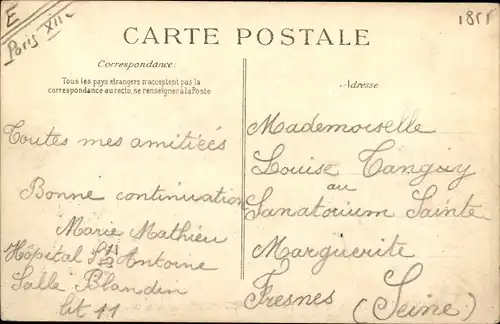 E
Paris XIIe
CARTE POSTALE
Correspondance:
Tous les pays étrangers n'acceptent pas la
correspondance au recto, se renseigner à la Poste
Toutes mes amitiées
Bonne continuation
Marie Mathieu
Hôpital St Antoine
Salle Blandin
lit 11
Adresse
Mademoiselle
Louise Tanguy
au
Sanatorium Sainte
Marguerite
Fresnes (Seine)